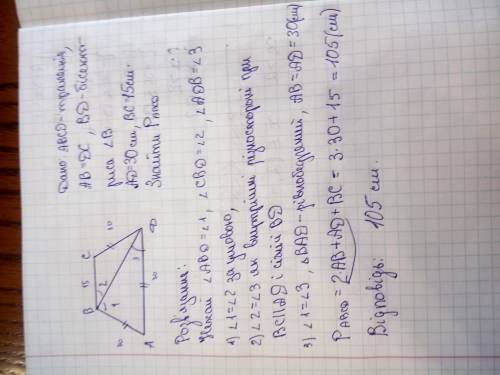 Дано: ABCD-трапеція,
AB=DC, BD-бісект-
риса ∠B
AD=30 см, BC=15 см.
Знайти P ABCD
B 15 C
1 2
30 30
3
A 30 D
Розв'язання:
Нехай ∠ABD=∠1, ∠CBD=∠2, ∠ADB=∠3
1) ∠1=∠2 за умовою,
2) ∠2=∠3 як внутрішні різносторонні при
BC||AD і січній BD
3) ∠1=∠3, BAD-рівнобедрений, AB=AD=30(см)
P ABCD = 2AB+AD+BC = 3·30+15 = 105(см)
Відповідь: 105 см.